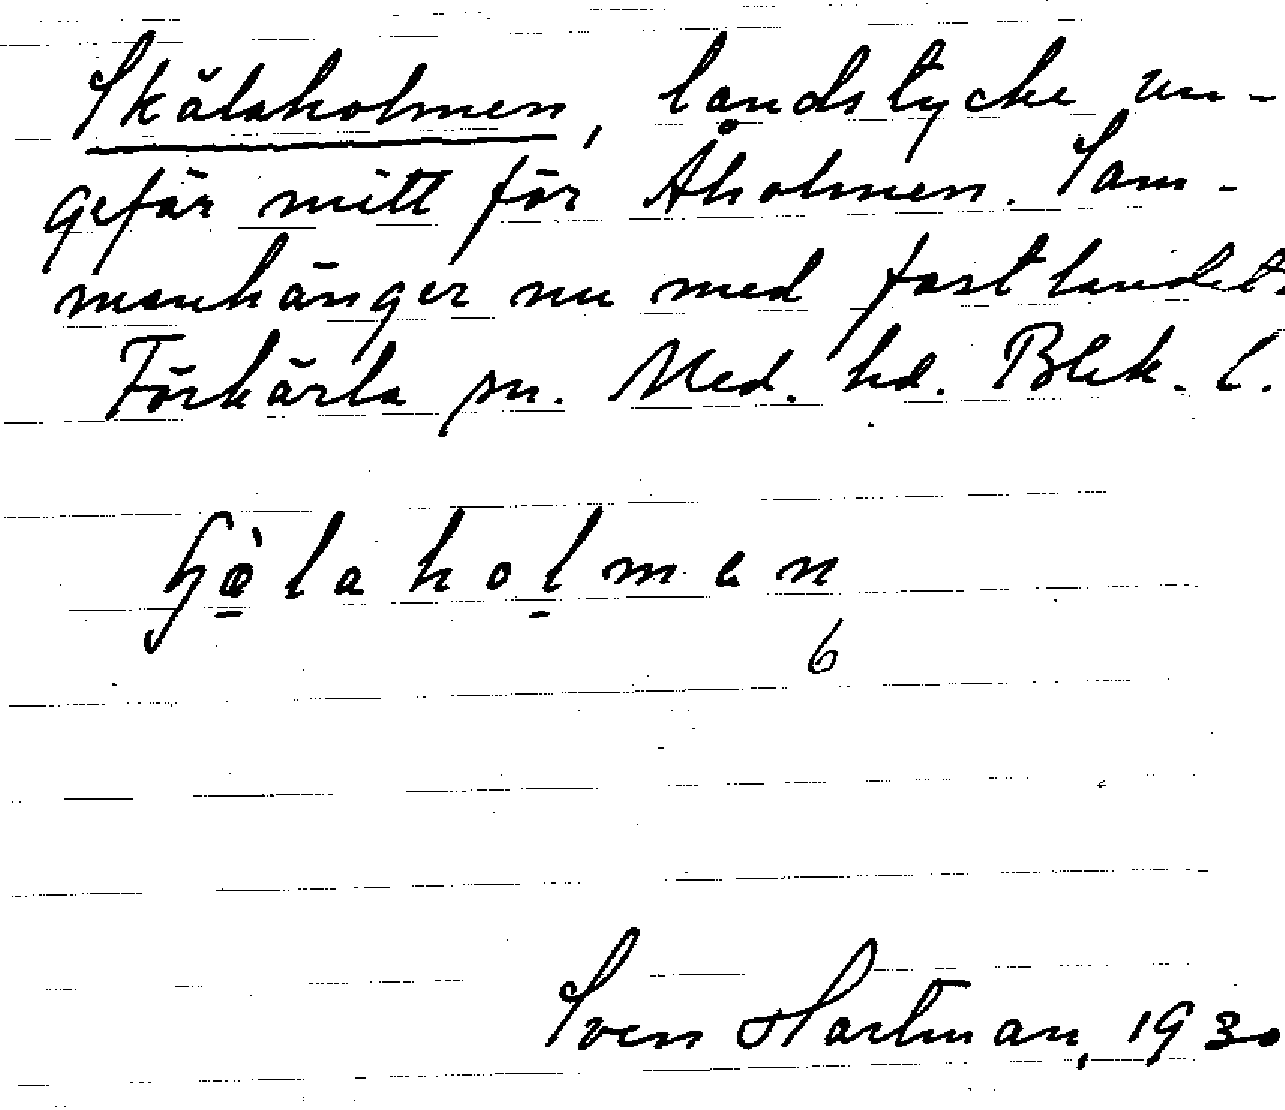 Skälaholmen, landstycke un-
gefär mitt för Åholmen. Sam-
manhänger nu med fastlandet.
Förkärla sn. Med. hd. Blek. l.
laholmen
6
Sven Hartman, 1930